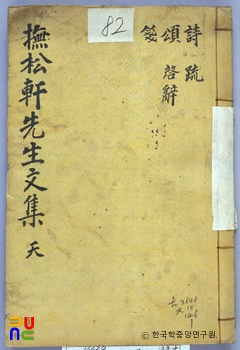 82
詩 疏
頌 啓 辭
箋
撫松軒先生文集 天
ⓒ 한국학중앙연구원